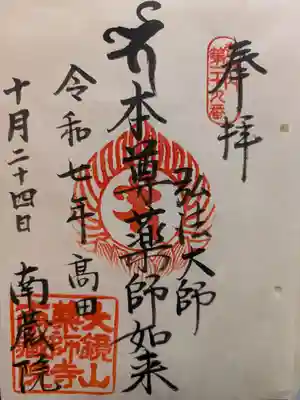 奉拝
弘法大師
本尊薬師如来
令和七年 高田
十月二十四日
南蔵院
大鏡山
薬師寺
南蔵院